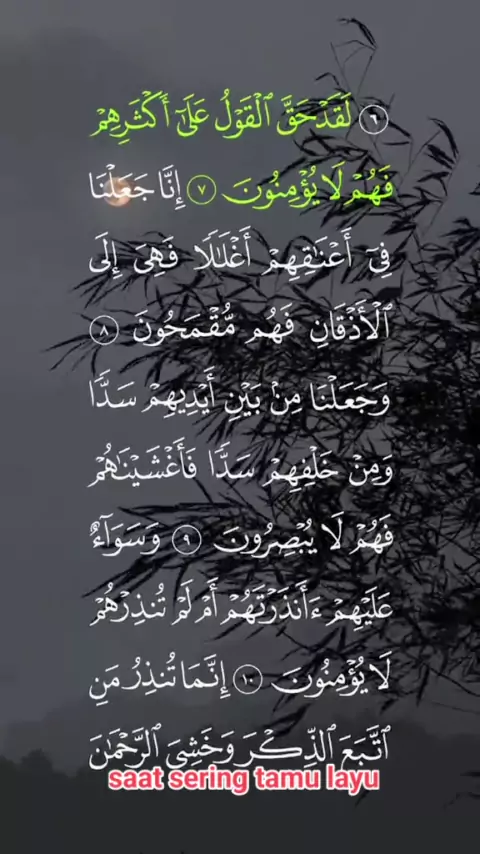 ٦ لَقَدْ حَقَّ ٱلْقَوْلُ عَلَىٰٓ أَكْثَرِهِمْ
فَهُمْ لَا يُؤْمِنُونَ ٧ إِنَّا جَعَلْنَا
فِىٓ أَعْنَـٰقِهِمْ أَغْلَـٰلًا فَهِىَ إِلَى
ٱلْأَذْقَانِ فَهُم مُّقْمَحُونَ ٨
وَجَعَلْنَا مِنۢ بَيْنِ أَيْدِيهِمْ سَدًّا
وَمِنْ خَلْفِهِمْ سَدًّا فَأَغْشَيْنَـٰهُمْ
فَهُمْ لَا يُبْصِرُونَ ٩ وَسَوَآءٌ
عَلَيْهِمْ ءَأَنذَرْتَهُمْ أَمْ لَمْ تُنذِرْهُمْ
لَا يُؤْمِنُونَ ١٠ إِنَّمَا تُنذِرُ مَنِ
ٱتَّبَعَ ٱلذِّكْرَ وَخَشِىَ ٱلرَّحْمَـٰنَ
saat sering tamu layu